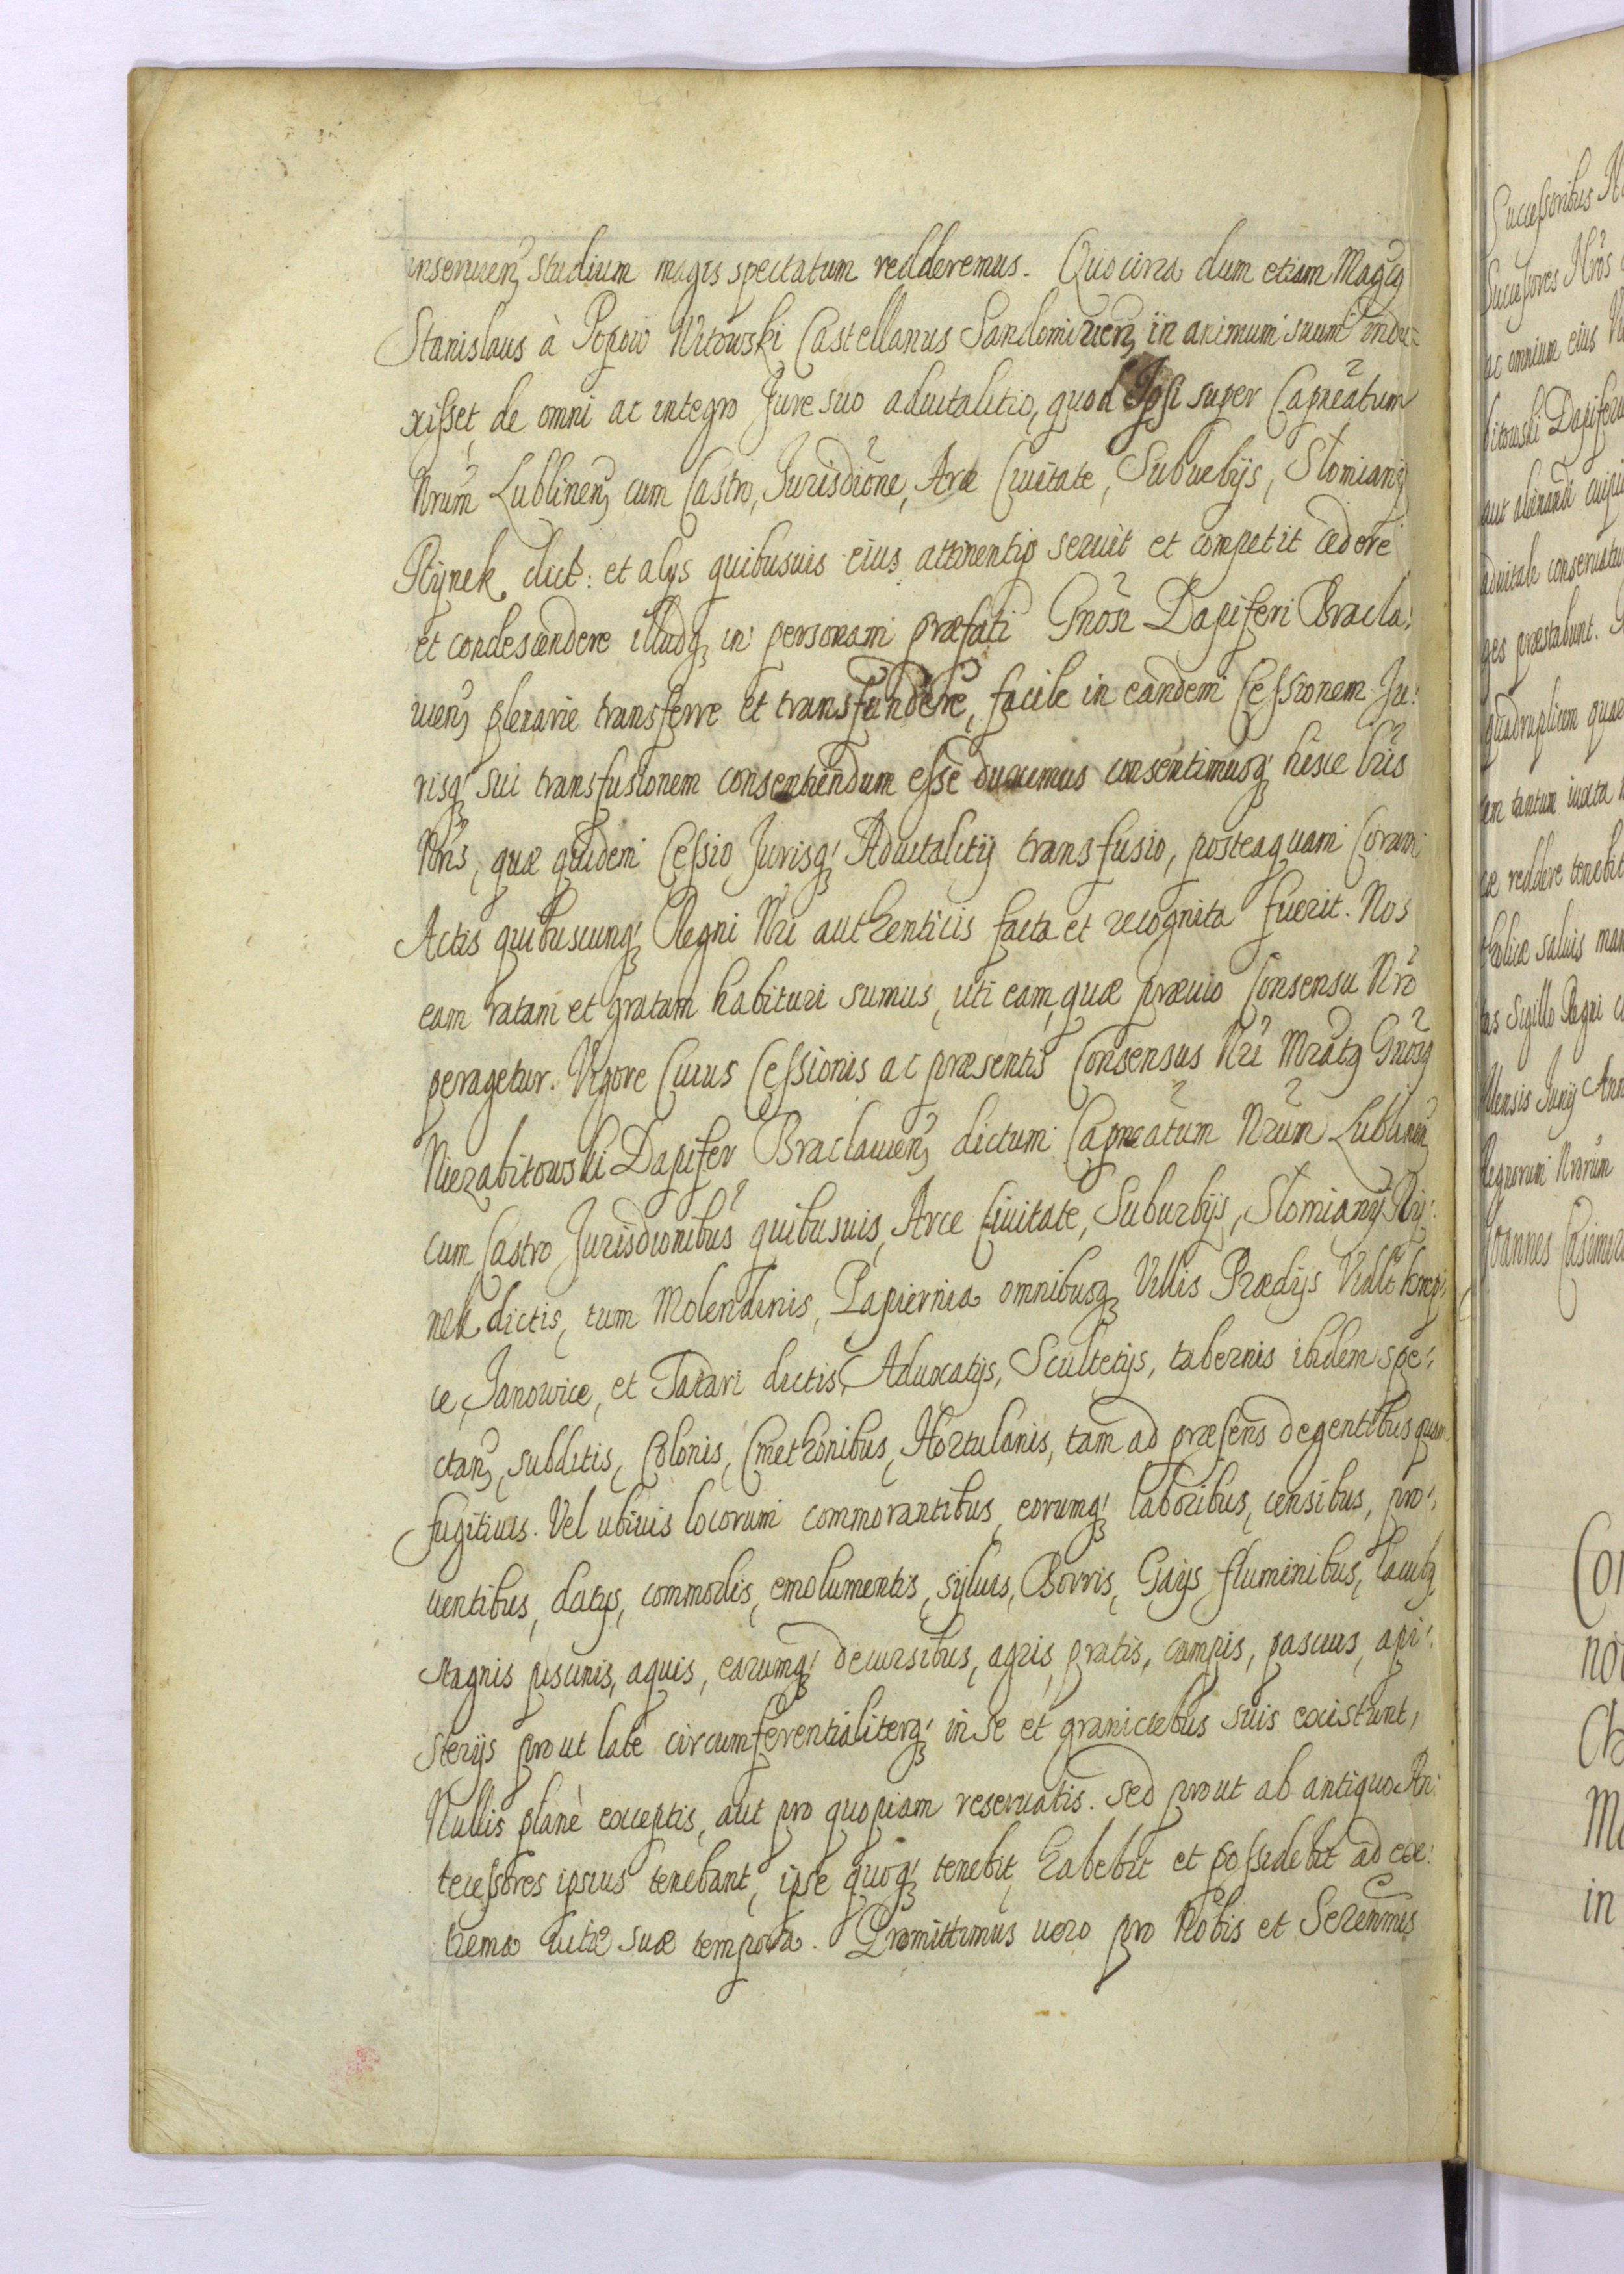 inserviend studium magis spectatum redderemus. Quocirca dum etiam Magcus
Stanislaus à Popow Witowski Castellanus Sandomirien in animum suum indu-
xisset, de omni ac integro Jure suo aduitalitio, quod Ipsi super Capneatum
Nrum Lublinen cum Castro, Jurisdione, Arce Ciuitate, Suburbijs, Słomiany
Rynek dict: et alijs quibusuis eius attinentijs seruit et competit cedere
et condescendere illudq in personam præfati Gnosi Dapiferi Bracla:
uien plenarie transferre et transfundere, facile in eandem Cessionem Ju:
risq sui transfusionem consentiendum esse duximus consentimusq hisce lris
Nris, quæ quidem Cessio Jurisq Aduitalitij transfusio, posteaquam Coram
Actis quibuscunq Regni Nri authenticis facta et recognita fuerit. Nos
eam ratam et gratam habituri sumus, uti eam, quæ præuio Consensu Nro
peragetur. Vigore Cuius Cessionis ac præsentis Consensus Nri Mratg Gnosg
Niezabitowski Dapifer Braclauien dictum Capneatum Nrum Lublinen
cum Castro Jurisdionibus quibusuis, Arce Ciuitate, Suburbijs, Słomiany Ry:
nek dictis, tum Molendinis, Papiernia omnibusq Villis Prædijs Vidlt Konop:
ce, Janowice, et Tatari dictis, Aduocatijs, Scultetijs, tabernis ibidem spe:
ctan, subditis, Colonis, Cmethonibus, Hortulanis, tam ad præsens degentibus quam
fugitiuis. Vel ubiuis locorum commorantibus, eorumq laboribus, censibus, pro:
uentibus, datijs, commodis, emolumentis, syluis, Borris, Gaijs fluminibus, lacubq
stagnis piscinis, aquis, earumq decursibus, agris, pratis, campis, pascuis, api:
sterijs prout late circumferentialiterq in se et graniciebus suis existunt,
Nullis planè exceptis, aut pro quopiam reseruatis. Sed prout ab antiquo An:
tecessores ipsius tenebant, ipse quoq tenebit, habebit et possidebit ad ex:
trema uitæ suæ tempora. Promittimus uero pro Nobis et Serenmis